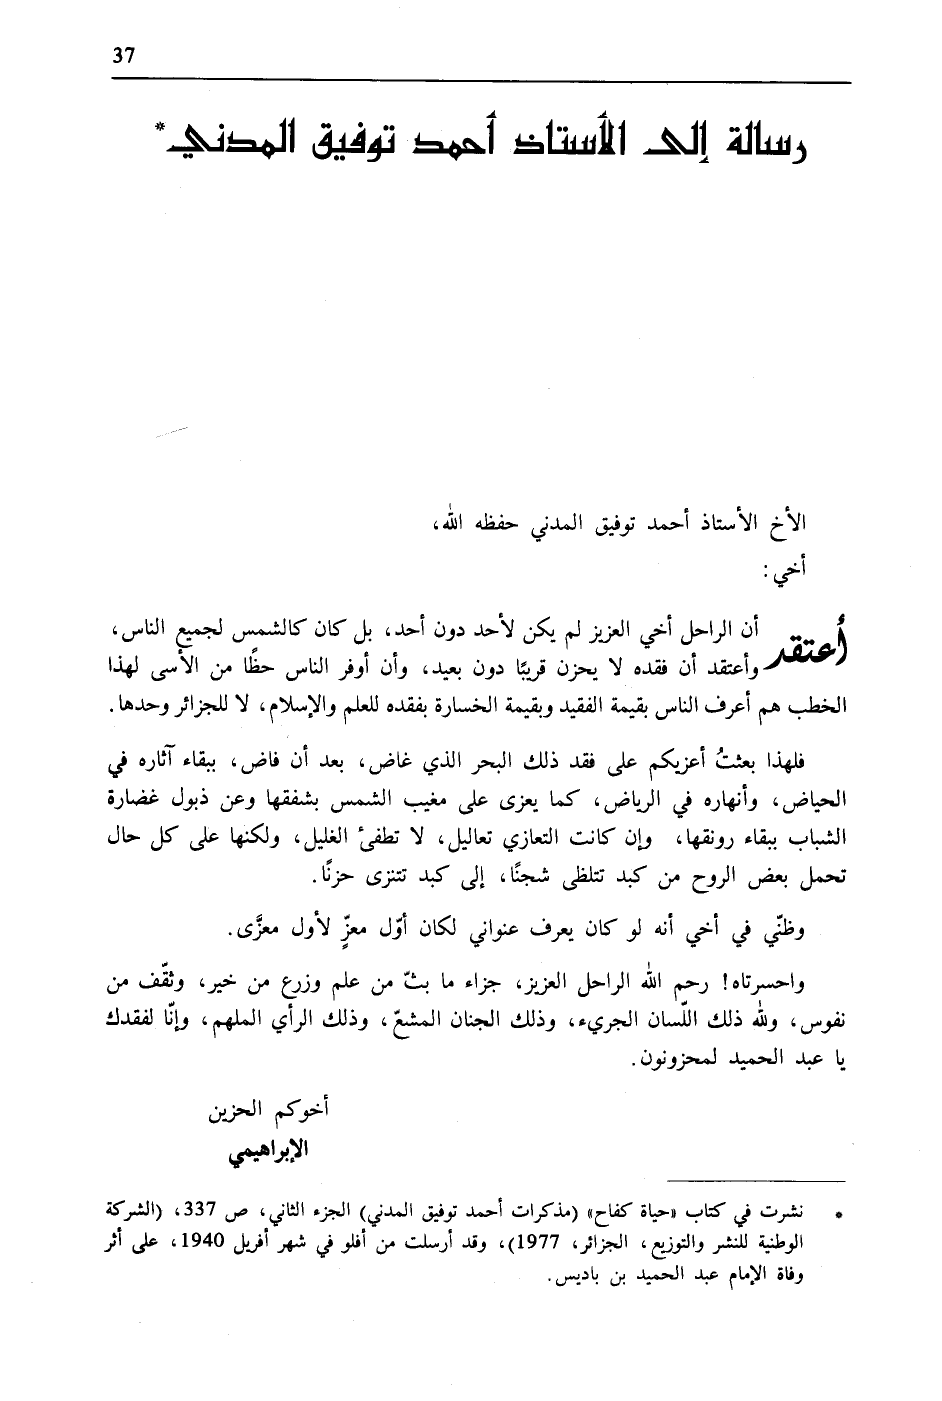 37
رسالة إلى الأستاذ أحمد توفيق المدني*
الأخ الأستاذ أحمد توفيق المدني حفظه الله،
أخي:
أعتقد أن الراحل أخي العزيز لم يكن لأحد دون أحد، بل كان كالشمس لجميع الناس،
وأعتقد أن فقده لا يحزن قريبًا دون بعيد، وأن أوفر الناس حظًا من الأسى لهذا
الخطب هم أعرف الناس بقيمة الفقيد وبقيمة الخسارة بفقده للعلم والإسلام، لا للجزائر وحدها.
فلهذا بعثتُ أعزيكم على فقد ذلك البحر الذي غاض، بعد أن فاض، ببقاء آثاره في
الحياض، وأنهاره في الرياض، كما يعزى على مغيب الشمس بشفقها وعن ذبول غضارة
الشباب ببقاء رونقها، وإن كانت التعازي تعاليل، لا تطفئ الغليل، ولكنها على كل حال
تحمل بعض الروح من كبد تتلظى شجنًا، إلى كبد تتنزى حزنًا.
وظنّي في أخي أنه لو كان يعرف عنواني لكان أوّل معزٍّ لأول معزَّى.
واحسرتاه! رحم الله الراحل العزيز، جزاء ما بثّ من علم وزرع من خير، وثقّف من
نفوس، ولله ذلك اللّسان الجريء، وذلك الجنان المشعّ، وذلك الرأي الملهم، وإنّا لفقدك
يا عبد الحميد لمحزونون.
أخوكم الحزين
الإبراهيمي
* نشرت في كتاب «حياة كفاح» (مذكرات أحمد توفيق المدني) الجزء الثاني، ص 337، (الشركة
الوطنية للنشر والتوزيع، الجزائر، 1977)، وقد أرسلت من أفلو في شهر أفريل 1940، على أثر
وفاة الإمام عبد الحميد بن باديس.